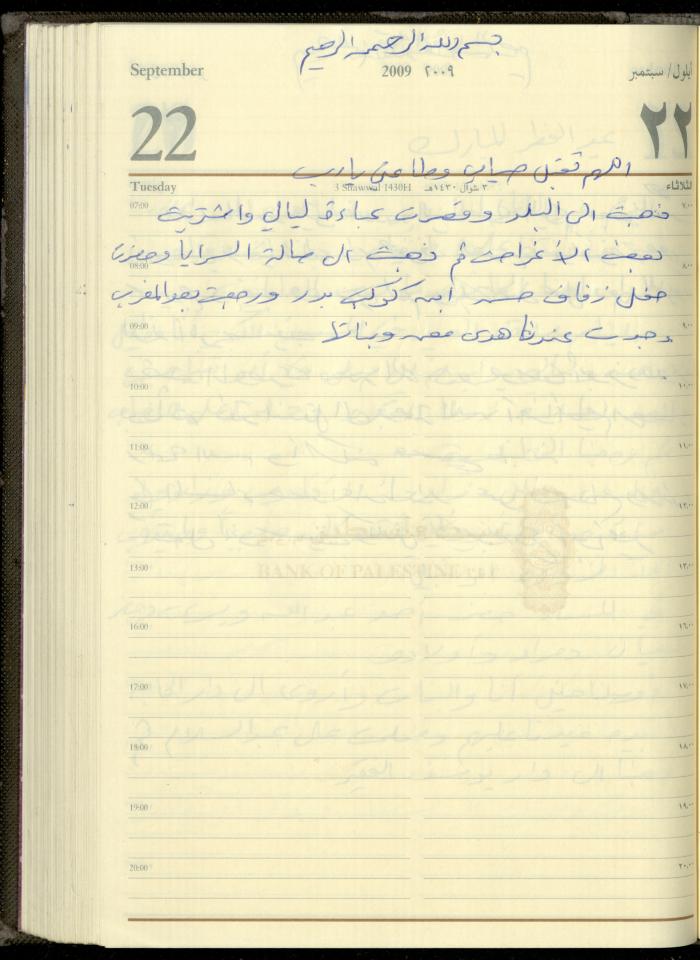 بسم الله الرحمن الرحيم
September
2009 ٢٠٠٩
أيلول/سبتمبر
22
٢٢
اللهم تقبل صيامي وطاعتي يارب
Tuesday
3 Shawwal 1430H
٣ شوال ١٤٣٠هـ
الثلاثاء
07:00 ٧,٠٠
ذهبت الى البلد وقصرت عباءة ليالي واشتريت
بعض الأغراض ثم ذهبت ال صالة السرايا وحضرت
08:00 ٨,٠٠
حفل زفاف حسن ابن كوكب بدر ورجعت بعد المغرب
09:00 ٩,٠٠
وجدت عندنا هدى معن وبناتها
10:00 ١٠,٠٠
11:00 ١١,٠٠
12:00 ١٢,٠٠
13:00 ١٣,٠٠
BANK OF PALESTINE
16:00 ١٦,٠٠
17:00 ١٧,٠٠
18:00 ١٨,٠٠
19:00 ١٩,٠٠
20:00 ٢٠,٠٠